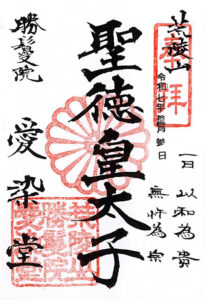 荒陵山
奉拝
令和七年拾月參日
一曰 以和為貴
無忤為宗
聖徳皇太子
勝鬘院
愛染堂
荒陵山
勝鬘院
愛染堂